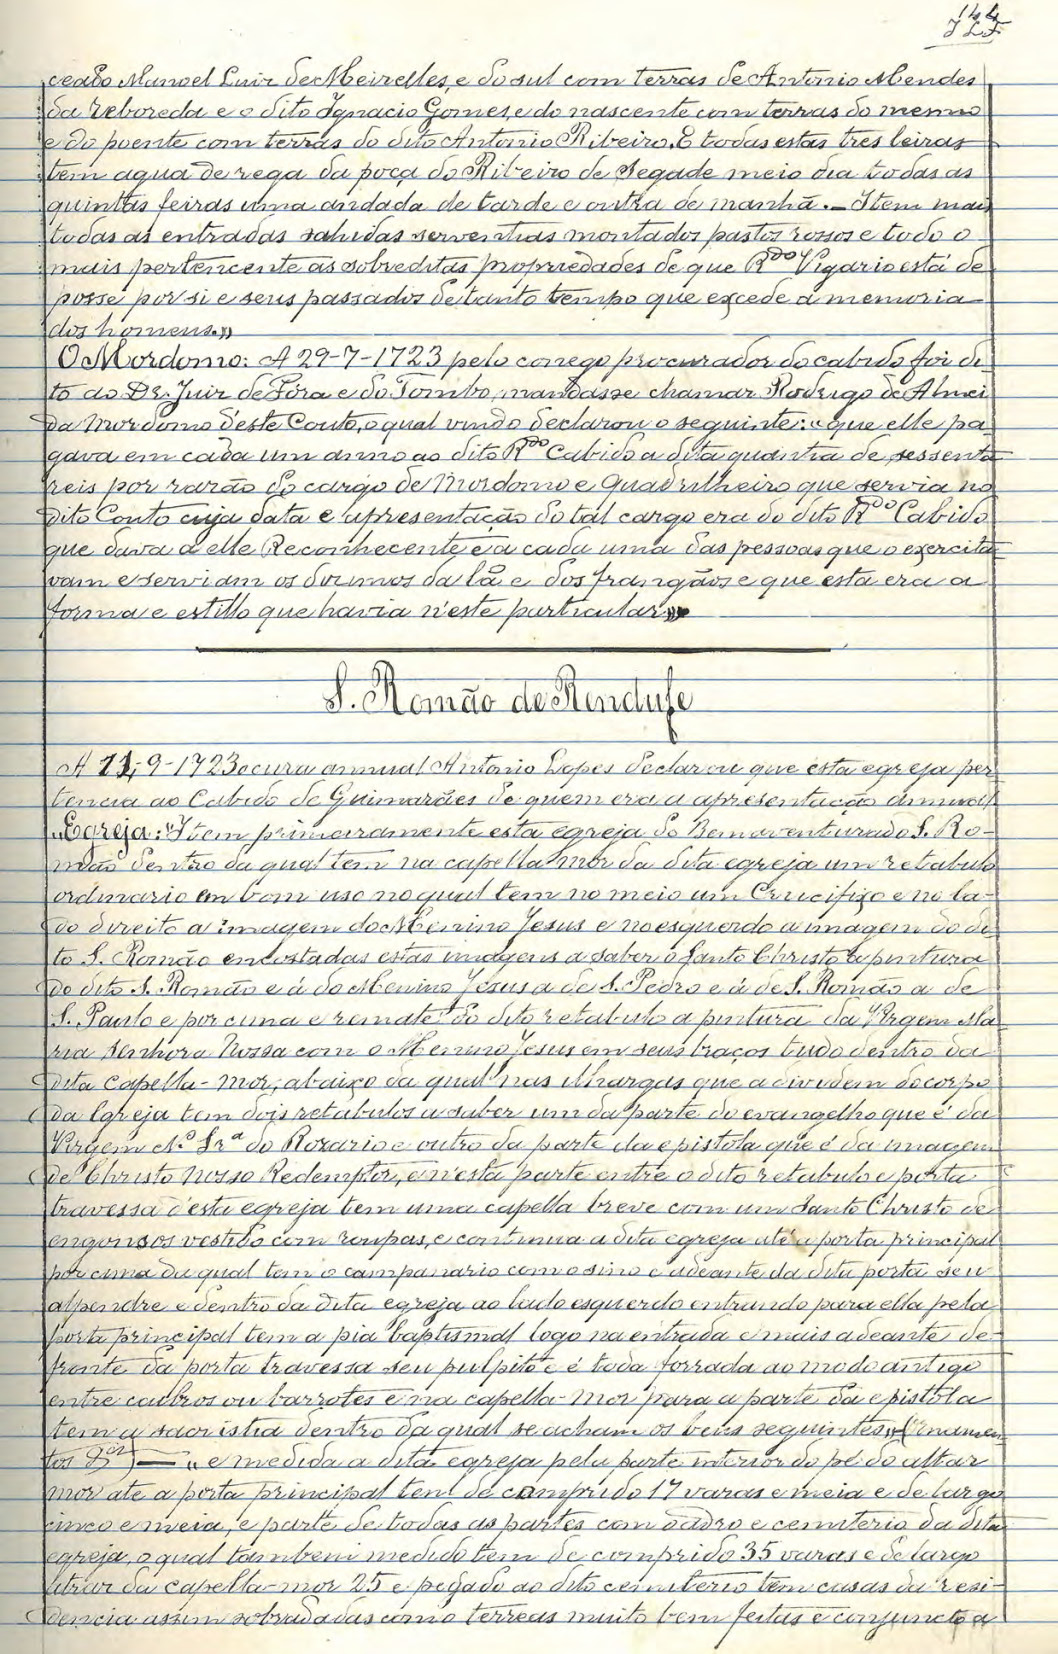 144
ceado Manoel Luiz de Meirelles, e do sul com terras de Antonio Mendes
da Reboreda e o dito Ignacio Gomes, e do nascente com terras do mesmo
e do poente com terras do dito Antonio Ribeiro. E todas estas tres leiras
tem agua de rega da poça do Ribeiro de Segade meio dia todas as
quintas feiras uma andada de tarde e outra de manhã. — Item mais
todas as entradas sahidas serventias montados pastos rossos e todo o
mais pertencente ás sobreditas propriedades de que Rdo Vigario está de
posse por si e seus passados de tanto tempo que excede a memoria
dos homens.»
O Mordomo: A 29-7-1723 pelo conego procurador do cabido foi di-
to ao Dr. Juiz de Fóra e do Tombo, mandasse chamar Rodrigo de Almei
da Mordomo d'este Couto, o qual vindo declarou o seguinte: "que elle pa
gava em cada um anno ao dito Rdo Cabido a dita quantia de sessenta
reis por razão do cargo de Mordomo e Quadrilheiro que servia no
dito Couto cuja data e apresentação do tal cargo era do dito Rdo Cabido
que dava a elle Reconhecente e a cada uma das pessoas que o exercita
vam e serviam os dizimos da lã e dos frangãos e que esta era a
forma e estillo que havia n'este particular»
S. Romão de Rendufe
A 11-9-1723 o cura annual Antonio Lopes declarou que esta egreja per
tencia ao Cabido de Guimarães de quem era a apresentação annual.
"Egreja: "Item primeiramente esta egreja do Bemaventurado S. Ro-
mão dentro da qual tem na capella mór da dita egreja um retabulo
ordinario em bom uso no qual tem no meio um Crucifixo e no la-
do direito a imagem do Menino Jesus e no esquerdo a imagem do di
to S. Romão encostadas estas imagens a saber o Santo Christo á pintura
do dito S. Romão e á do Menino Jesus a de S. Pedro e á de S. Romão a de
S. Paulo e por cima e remate do dito retabulo a pintura da Virgem Ma
ria Senhora Nossa com o Menino Jesus em seus braços tudo dentro da
dita capella-mór, abaixo da qual nas ilhargas que a dividem do corpo
da Igreja tem dois retabulos a saber um da parte do evangelho que é da
Virgem N.ª Sr.ª do Rozario e outro da parte da epistola que é da imagem
de Christo Nosso Redemptor, e n'esta parte entre o dito retabulo e porta
travessa d'esta egreja tem uma capella breve com um Santo Christo de
engonsos vestido com roupas, e continua a dita egreja até a porta principal
por cima da qual tem o campanario com o sino e adeante da dita porta seu
alpendre e dentro da dita egreja ao lado esquerdo entrando para ella pela
porta principal tem a pia baptismal logo na entrada e mais adeante de-
fronte da porta travessa seu pulpito e é toda forrada ao modo antigo
entre caibros ou barrotes e na capella-mor para a parte da epistola
tem a sacristia dentro da qual se acham os bens seguintes» (Ornamen
tos — " e medida a dita egreja pela parte interior do pé do altar
mor até a porta principal tem de comprido 17 varas e meia e de largo
cinco e meia, e parte de todas as partes com o adro e cemiterio da dita
egreja, o qual tambem medido tem de comprido 35 varas e de largo
atraz da capella-mor 25 e pegado ao dito cemiterio tem casas da resi-
dencia assim sobradadas como terreas muito bem feitas e conjuncto a